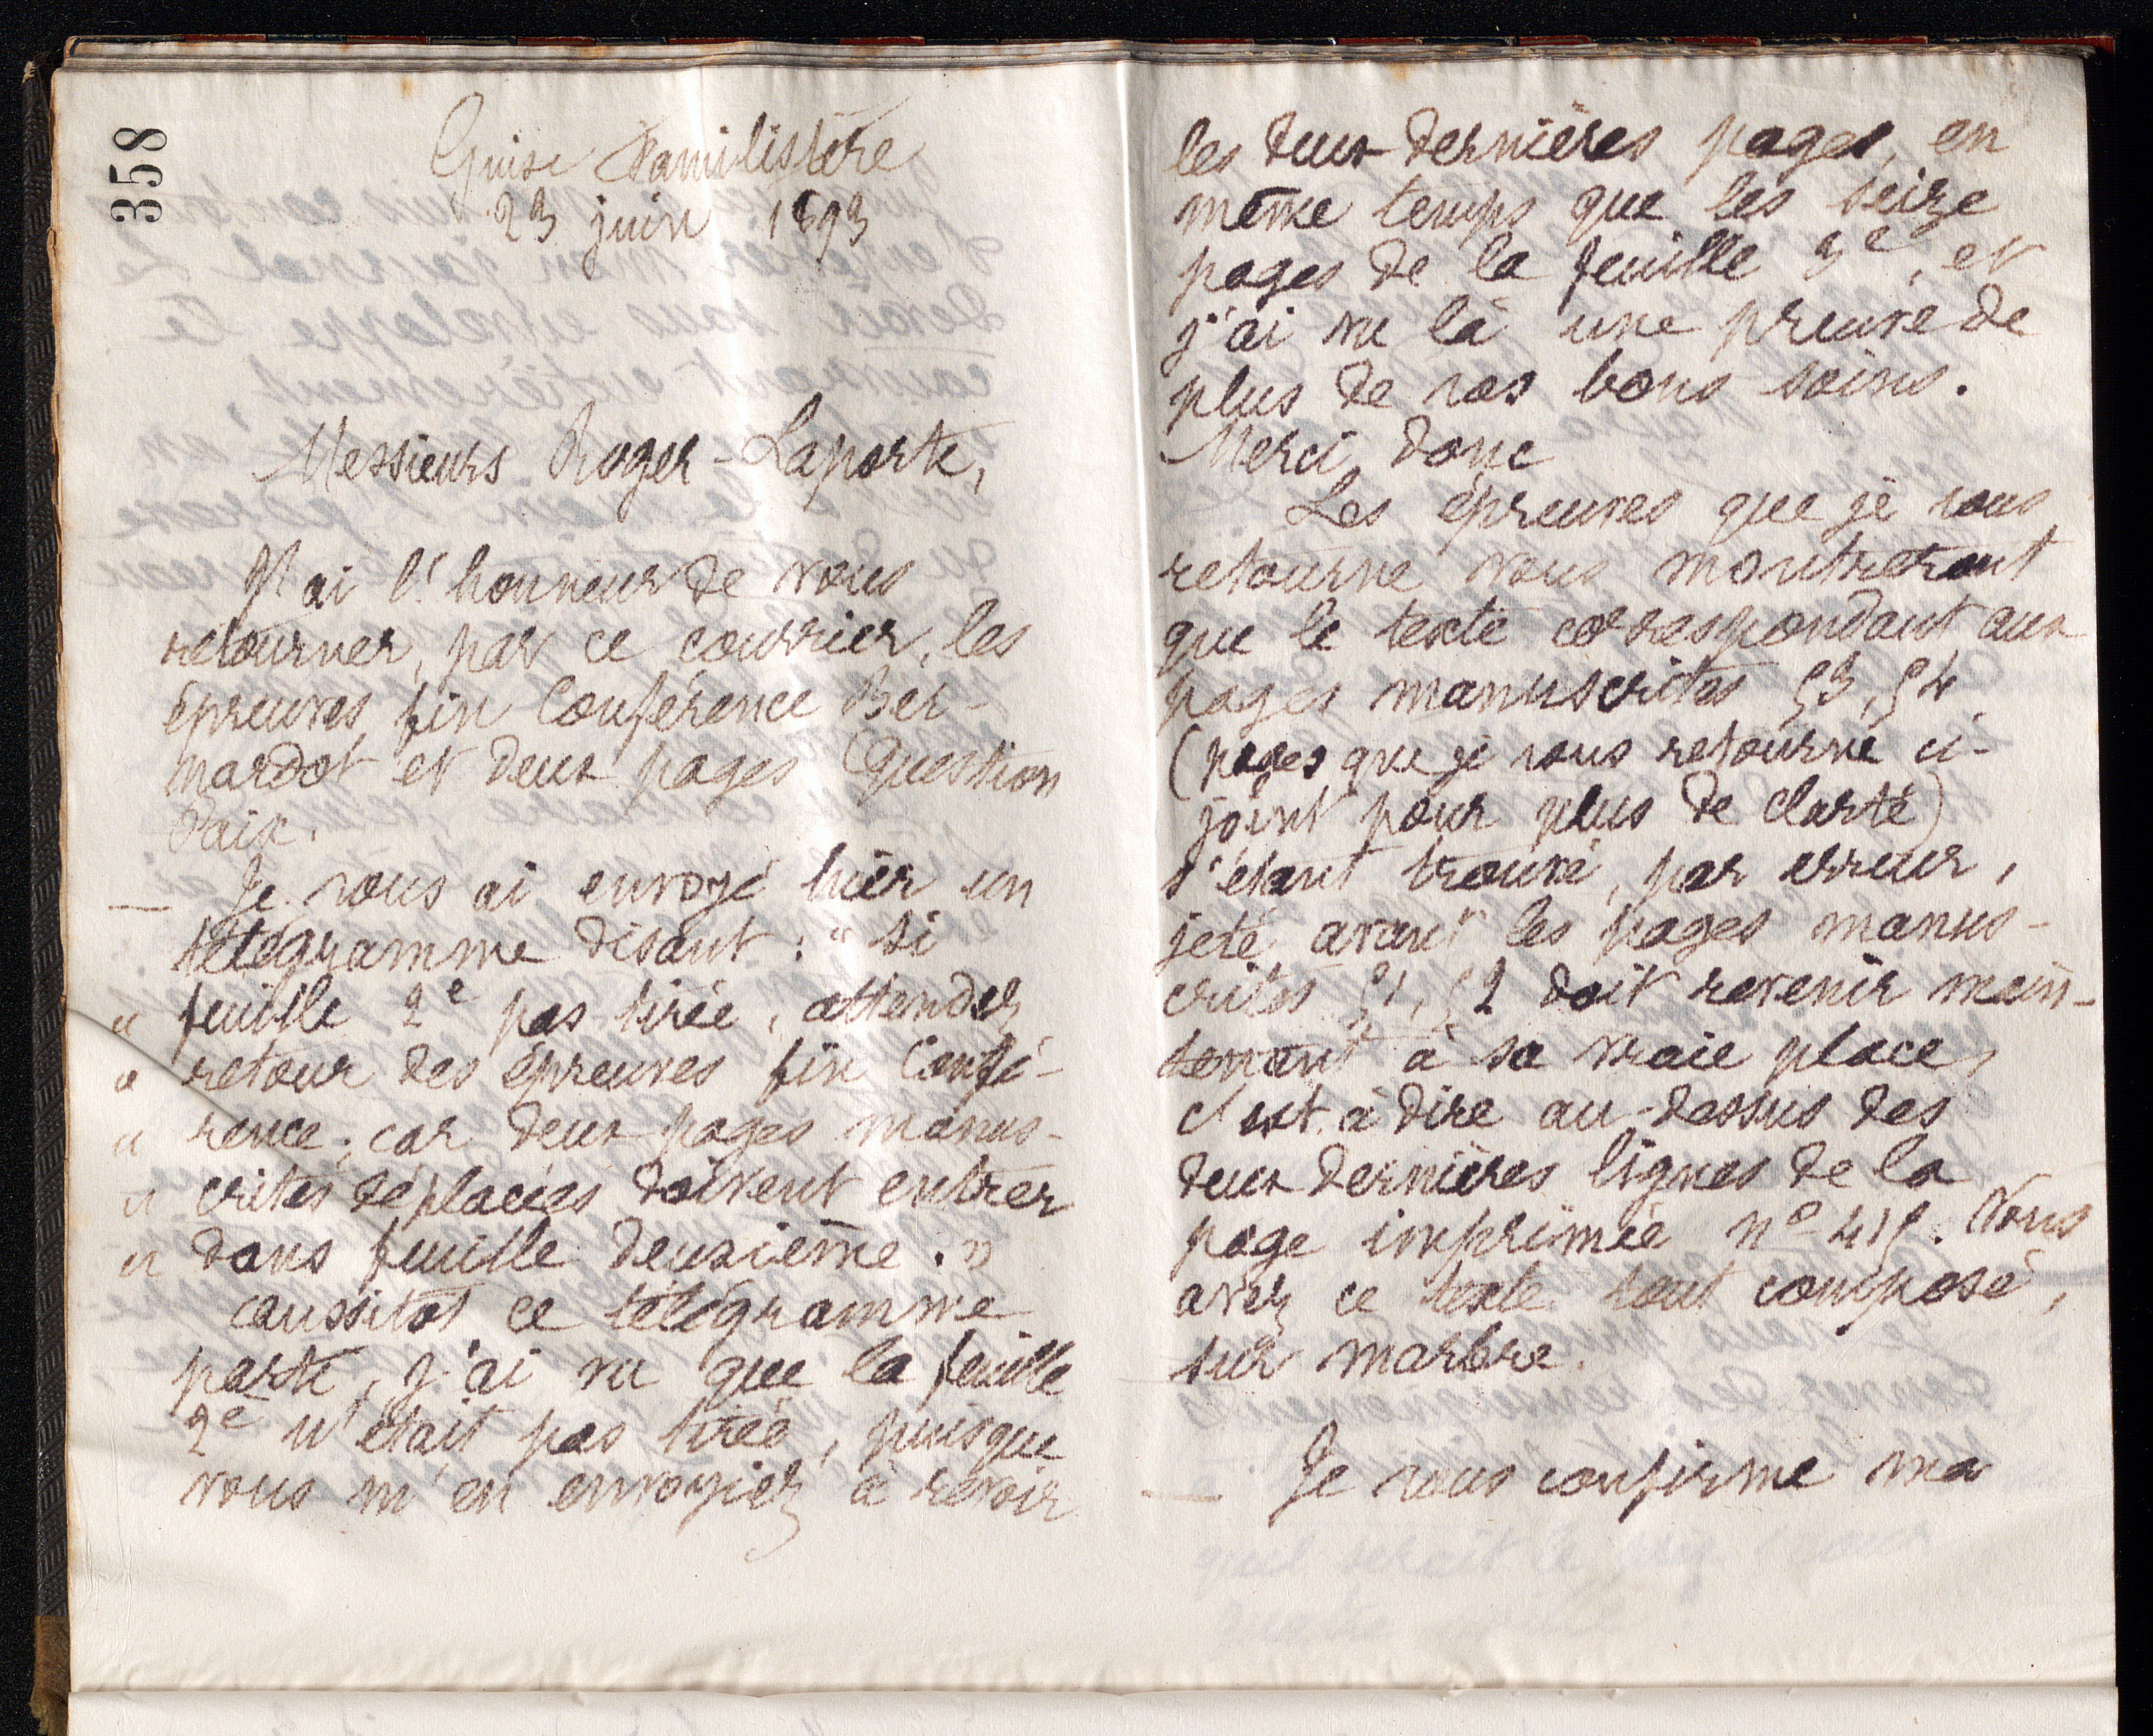 358
Guise Familistère
23 juin 1893
Messieurs Roger-Laporte,
J'ai l'honneur de vous
retourner, par ce courrier, les
épreuves fin Conférence Ber-
nardot et deux pages Question
Paix.
— Je vous ai envoyé hier un
télégramme disant : " si
" feuille 2e pas tirée, attendez
" retour des épreuves fin Confé-
" rence ; car deux pages manus-
" crites déplacées doivent entrer
" dans feuille deuxième. "
aussitôt ce télégramme
parti, j'ai vu que la feuille
2e n'était pas tirée, puisque
vous m'en envoyiez à revoir
les deux dernières pages, en
même temps que les seize
pages de la feuille 3e, et
j'ai vu là une preuve de
plus de vos bons soins.
Merci donc
Les épreuves que je vous
retourne vous montreront
que le texte correspondant aux
pages manuscrites 53, 54
(pages que je vous retourne ci-
joint pour plus de clarté)
s'étant trouvé, par erreur,
jeté avant les pages manus-
crites 51, 52 doit revenir main-
tenant à sa vraie place,
c'est à dire au-dessus des
deux dernières lignes de la
page imprimée no 415. Vous
avez ce texte tout composé,
sur marbre.
— Je vous confirme ma